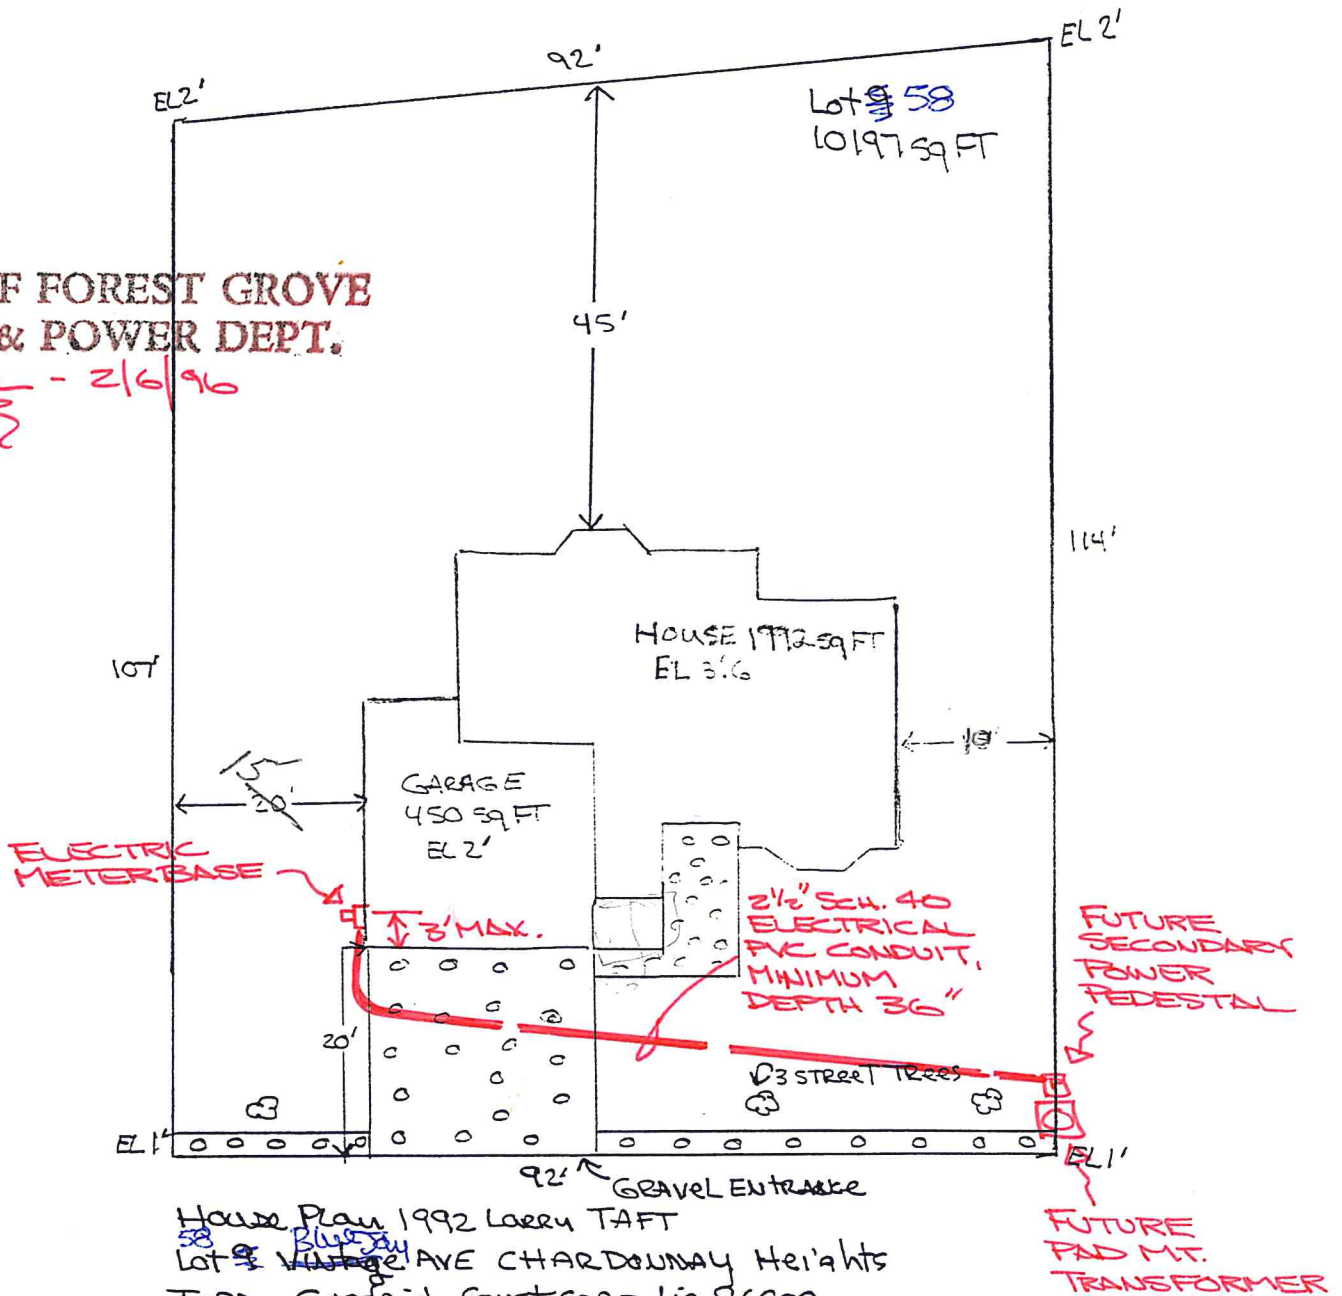 92'
EL 2'
EL2'
Lot 58
10197 sq FT
F FOREST GROVE
& POWER DEPT.
- 2/6/96
45'
114'
HOUSE 1992 sq FT
EL 3'.6
107'
10'
15
20'
GARAGE
450 sq FT
EL 2'
ELECTRIC
METERBASE
3' MAX.
2½" SCH. 40
ELECTRICAL
PVC CONDUIT,
MINIMUM
DEPTH 36"
FUTURE
SECONDARY
POWER
PEDESTAL
20'
3 STREET TREES
EL 1'
EL 1'
92'
GRAVEL ENTRANCE
House Plan 1992 Larry TAFT
58 Blue Jay
Lot 9 Vintage AVE CHARDONNAY Heights
FUTURE
PAD MT.
TRANSFORMER